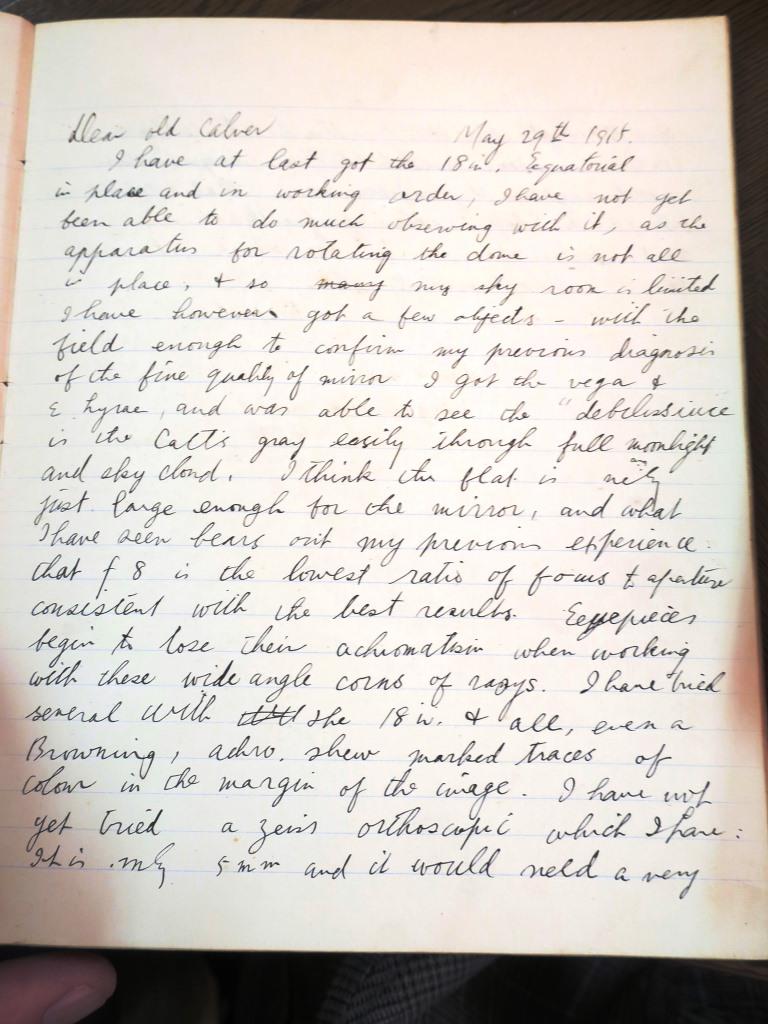 Dear old Calver May 29th 1915.
I have at last got the 18 in. Equatorial
in place and in working order, I have not yet
been able to do much observing with it, as the
apparatus for rotating the dome is not all
in place, & so many my sky room is limited
I have however got a few objects - with the
field enough to confirm my previous diagnosis
of the fine quality of mirror I got the vega &
ε hyrae, and was able to see the "debilissima
is the Catts gray easily through full moonlight
and sky cloud. I think the flat is only
just large enough for the mirror, and what
I have seen bears out my previous experience.
that f 8 is the lowest ratio of focus to aperture
consistent with the best results. Eyepieces
begin to lose their achromatism when working
with these wide angle corns of rays. I have tried
several with the 18 in. & all, even a
Browning, achro. shew marked traces of
colour in the margin of the image. I have not
yet tried a zeiss orthoscopic which I have:
It is only 5 mm and it would neld a very